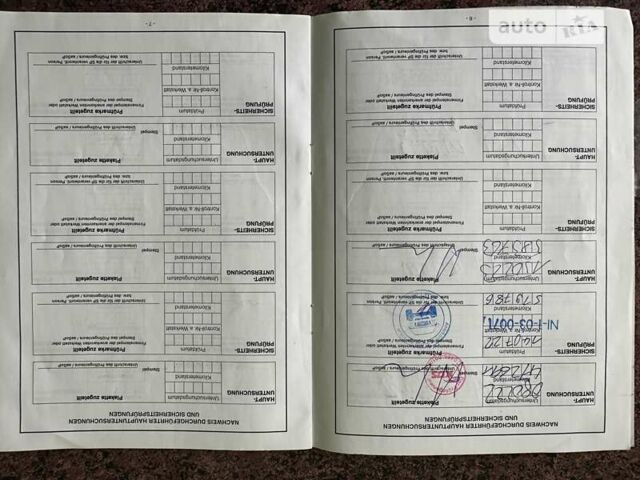 auto RIA
- 6 -
NACHWEIS DURCHGEFÜHRTER HAUPTUNTERSUCHUNGEN
UND SICHERHEITSPRÜFUNGEN
HAUPT-
UNTERSUCHUNG
Untersuchungsdatum
Kilometerstand
Plakette zugeteilt
Stempel
SICHERHEITS-
PRÜFUNG
Prüfdatum
Kontroll-Nr. a. Werkstatt
NI-1-03-0071
Kilometerstand
579786
Prüfmarke zugeteilt
Firmenstempel der anerkannten Werkstatt oder
Stempel Prüfingenieurs / aaSoP
Unterschrift der für die SP verantwortl. Person
bzw. des Prüfingenieurs / aaSoP
HAUPT-
UNTERSUCHUNG
Untersuchungsdatum
Kilometerstand
585763
Plakette zugeteilt
Stempel
Unterschrift des Prüfingenieurs / aaSoP
SICHERHEITS-
PRÜFUNG
Prüfdatum
Kontroll-Nr. a. Werkstatt
Kilometerstand
Prüfmarke zugeteilt
Firmenstempel der anerkannten Werkstatt oder
Stempel Prüfingenieurs / aaSoP
Unterschrift der für die SP verantwortl. Person
bzw. des Prüfingenieurs / aaSoP
HAUPT-
UNTERSUCHUNG
Untersuchungsdatum
Kilometerstand
Plakette zugeteilt
Stempel
Unterschrift des Prüfingenieurs / aaSoP
SICHERHEITS-
PRÜFUNG
Prüfdatum
Kontroll-Nr. a. Werkstatt
Kilometerstand
Prüfmarke zugeteilt
Firmenstempel der anerkannten Werkstatt oder
Stempel Prüfingenieurs / aaSoP
Unterschrift der für die SP verantwortl. Person
bzw. des Prüfingenieurs / aaSoP
- 7 -
NACHWEIS DURCHGEFÜHRTER HAUPTUNTERSUCHUNGEN
UND SICHERHEITSPRÜFUNGEN
HAUPT-
UNTERSUCHUNG
Untersuchungsdatum
Kilometerstand
Plakette zugeteilt
Stempel
Unterschrift des Prüfingenieurs / aaSoP
SICHERHEITS-
PRÜFUNG
Prüfdatum
Kontroll-Nr. a. Werkstatt
Kilometerstand
Prüfmarke zugeteilt
Firmenstempel der anerkannten Werkstatt oder
Stempel Prüfingenieurs / aaSoP
Unterschrift der für die SP verantwortl. Person
bzw. des Prüfingenieurs / aaSoP
HAUPT-
UNTERSUCHUNG
Untersuchungsdatum
Kilometerstand
Plakette zugeteilt
Stempel
Unterschrift des Prüfingenieurs / aaSoP
SICHERHEITS-
PRÜFUNG
Prüfdatum
Kontroll-Nr. a. Werkstatt
Kilometerstand
Prüfmarke zugeteilt
Firmenstempel der anerkannten Werkstatt oder
Stempel Prüfingenieurs / aaSoP
Unterschrift der für die SP verantwortl. Person
bzw. des Prüfingenieurs / aaSoP
HAUPT-
UNTERSUCHUNG
Untersuchungsdatum
Kilometerstand
Plakette zugeteilt
Stempel
Unterschrift des Prüfingenieurs / aaSoP
SICHERHEITS-
PRÜFUNG
Prüfdatum
Kontroll-Nr. a. Werkstatt
Kilometerstand
Prüfmarke zugeteilt
Firmenstempel der anerkannten Werkstatt oder
Stempel Prüfingenieurs / aaSoP
Unterschrift der für die SP verantwortl. Person
bzw. des Prüfingenieurs / aaSoP